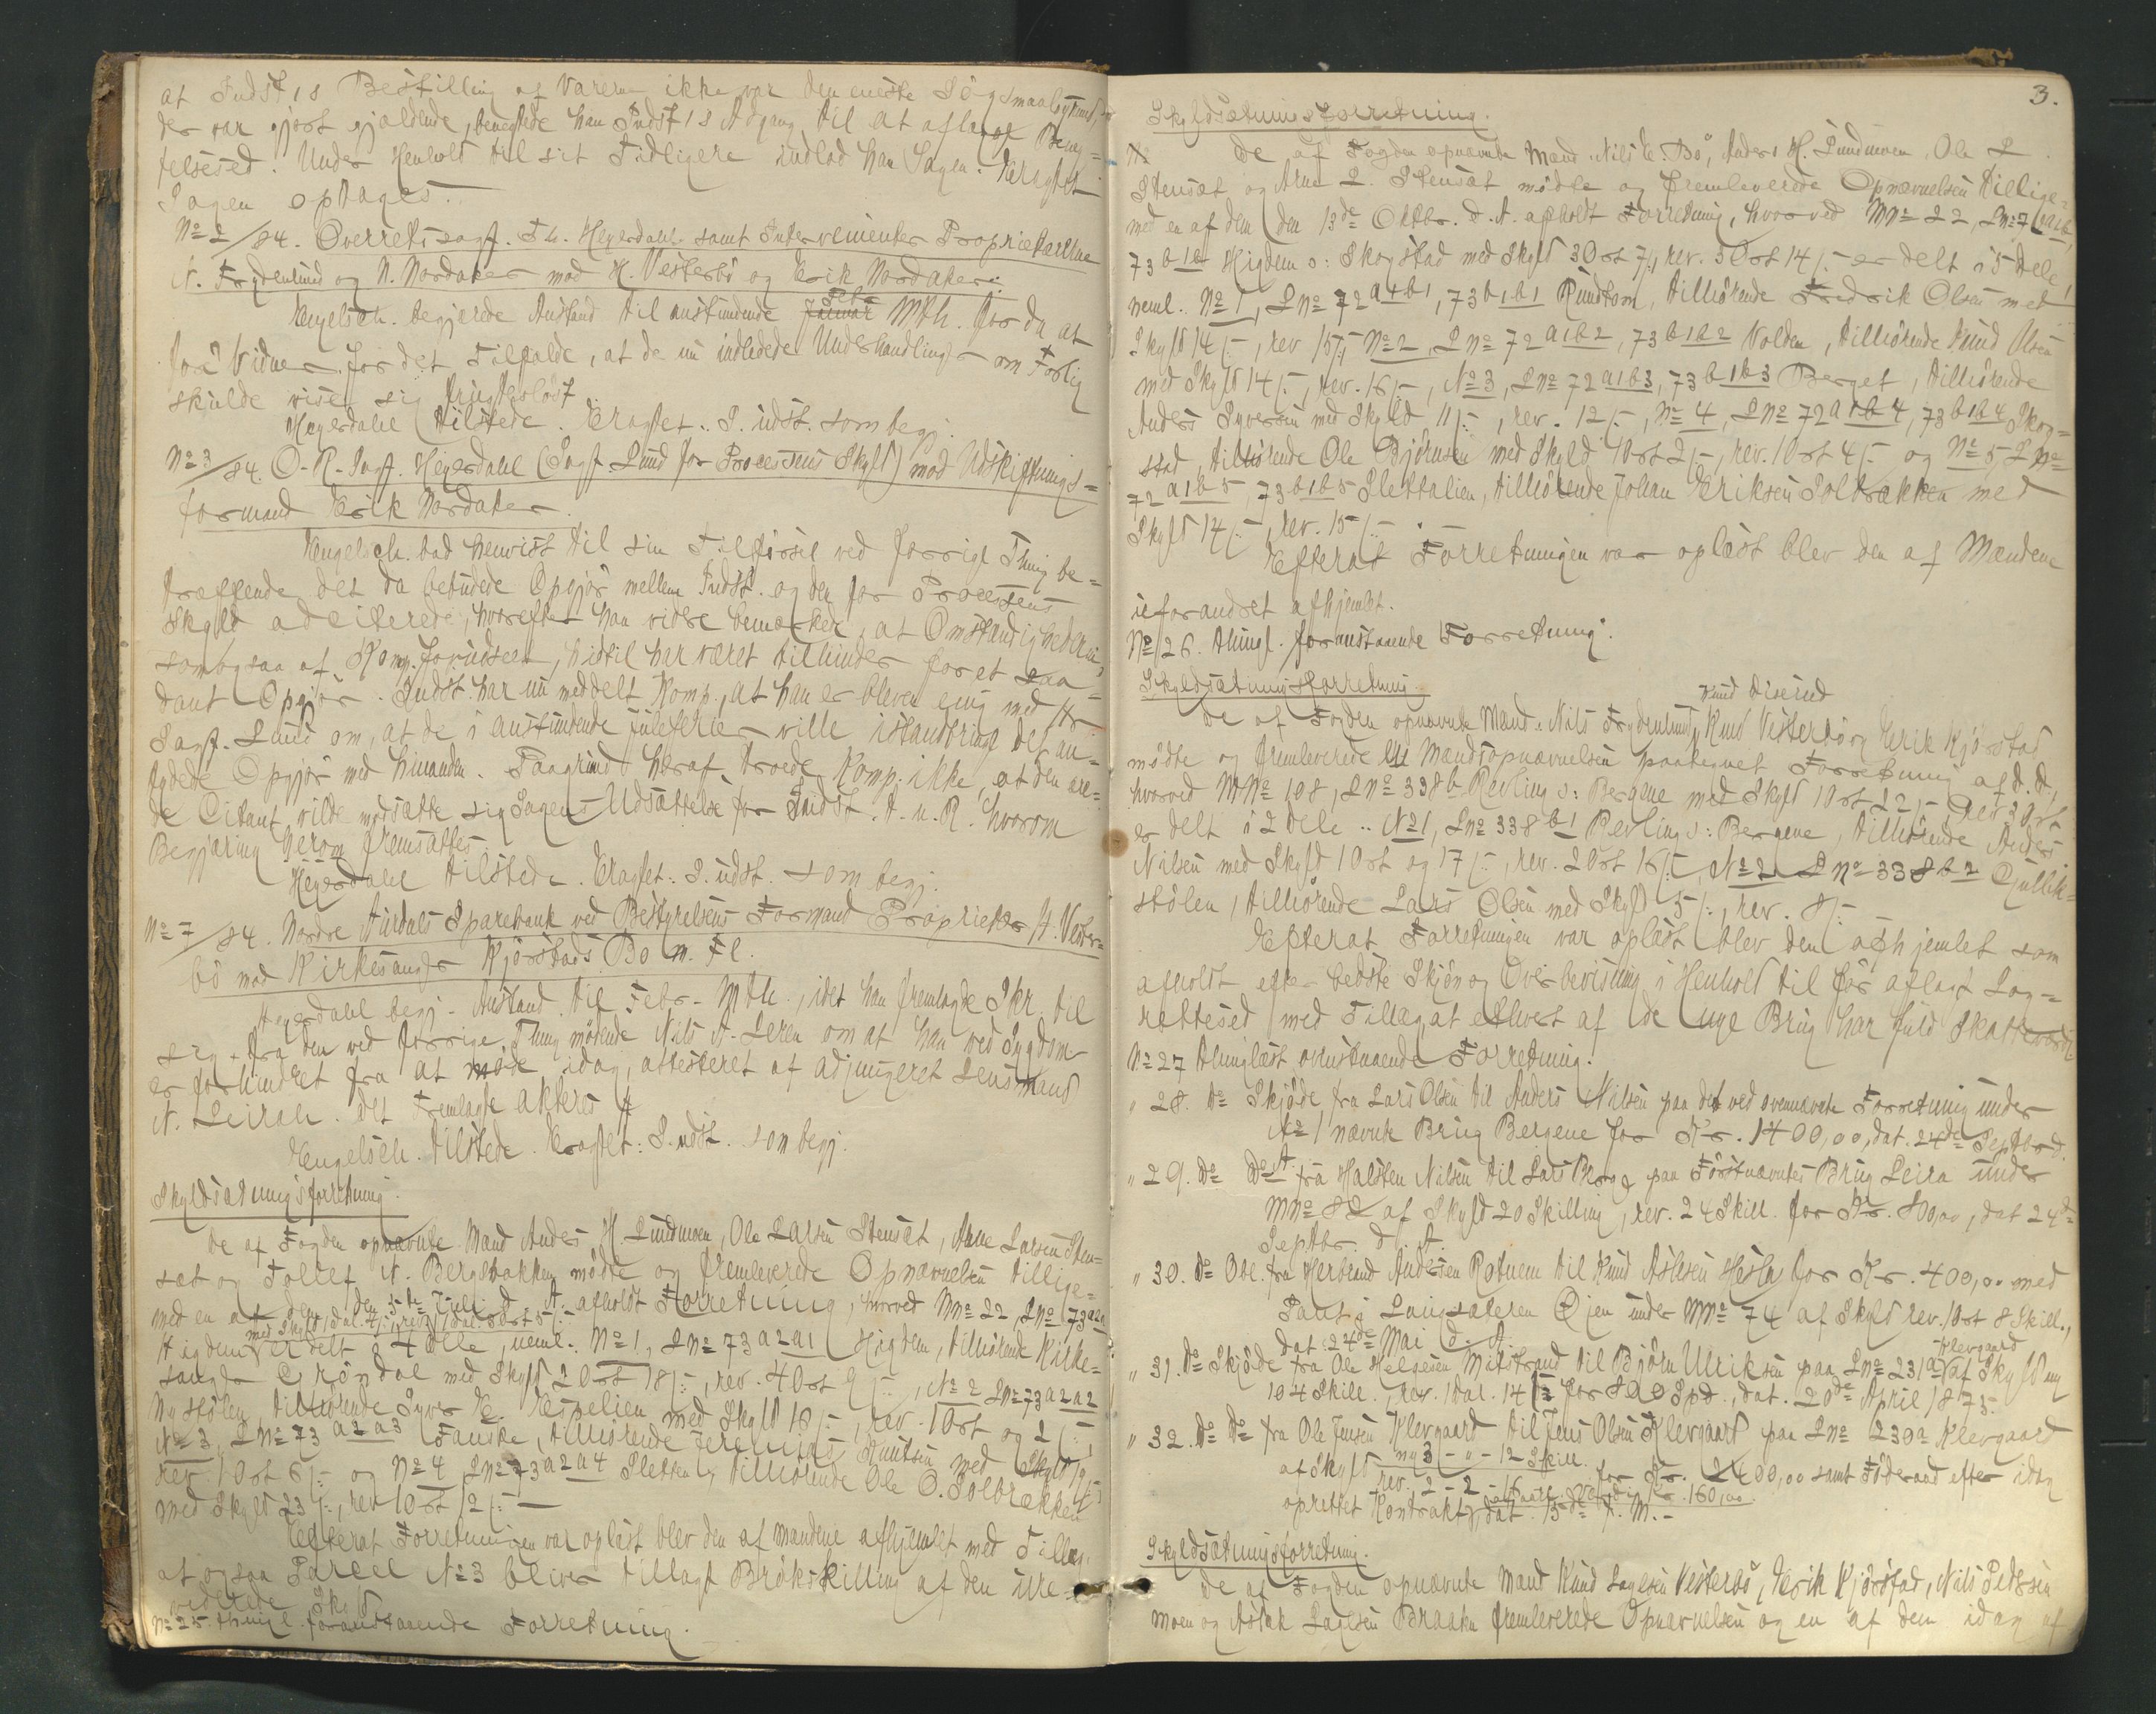 at Indst's Bestilling af Varerne ikke var den eneste Søgsmaalsgrund,
der var gjort gjældende, benegtede han Indst's Adgang til at aflægge Beneg=
telsesed. Under Henhold til sit Tidligere indlod han Sagen. Eragtet
Sagen optages.
No 2/84. Overretssagf. Th. Heyerdahl samt Intervenienter Proprietærerne
N. Frydenlund og N. Nordaker mod H. Vesterbø og Erik Nordaker:
Engelsch. begjerede Anstand til anstundende Januar Febr Mth. for da at
føre Vidner for det Tilfælde, at de nu indledede Underhandlinger om Forlig
skulde vise sig frugtesløst.
Heyerdahl tilstede. Eragtet: S. udst. som begj.
No 3/84. O-R-Sagf. Heyerdahl (Sagf. Lund for Processens Skyld) mod Udskiftnings=
formand Erik Nordaker.
Engelsch. bad henvist til sin Tilførsel ved forrige Thing be=
træffende det da bebudede Opgjør mellem Indst. og den for Processens
Skyld adciterede, hvorefter han vidre bemærkede, at Omstændighederne,
som ogsaa af Komp. forudseet, hidtil har været tilhinder for et saa=
dant Opgjør. Indst. har nu meddelt Komp., at han er bleven enig med Hr
Sagf. Lund om, at de i anstundende Juleferier ville istandbringe det an=
tydede Opgjør med hinanden. Paagrund heraf troede Komp. ikke, at den ære=
de Citant vilde modsætte sig Sagens Udsættelse for Indst. t. n. R. hvorom
Begjæring herom fremsattes.
Heyerdahl tilstede. Eragtet: S. udst. som begj.
No 7/84. Nordre Aurdals Sparebank ved Bestyrelsens Formand Proprietær H. Vester=
bø mod Kirkesanger Kjørstads Bo m. Fl.
Heyerdahl begj. Anstand til Febr. Mth., idet han fremlagde Skr. til
sig fra den ved forrige Thing mødende Nils A. Leren om at han ved Sygdom
er forhindret fra at møde idag, attesteret af adjungeret Lensmand
N. Leirah. Det Fremlagte akteres #
Engelsch. tilstede. Eragtet: S. udst. som begj.
Skyldsætningsforretning.
De af Fogden opnævnte Mænd Anders H. Lundmoen, Ole Larsen Stensæt, Arne Larsen Sten=
sæt og Tollef N. Bergsbakken mødte og fremleverede Opnævnelsen tillige=
med en af dem den 5te Juli d. A. afholdt Forretning, hvorved Mno 22, Lno 73a2a
Higdem med Skyld 1 Dal. 4 /:, rev. 1 Dal. 3 Ort 5 /: er delt i 4 Dele, neml. No 1, Lno 73a2a1 Higdem, tilhørende Kirke=
sanger Grøndal med Skyld 2 Ort 18 /:, rev. 4 Ort 9 /:, No 2 Lno 73a2a2
Nystølen, tilhørende Syver E. Espelien med Skyld 16 /:, rev. 1 Ort og 2 /:,
No 3, Lno 73a2a3 Fauske, tilhørende Jeremias Knutsen med Skyld 19 /:,
rev. 1 Ort 6 /: og No 4 Lno 73a2a4 Sletten, tilhørende Ole O. Solbrækken
med Skyld 23 /:, rev 1 Ort 12 /: —
Efterat Forretningen var oplæst blev den af Mændene afhjemlet med Tillæg
at ogsaa Parcel No 3 bliver tillagt Brøkskilling af den ure=
viderede Skyld
No 25. Thingl. foranstaaende Forretning.
3.
Skyldsætningsforretning.
De af Fogden opnævnte Mænd Nils E. Bø, Anders H. Lundmoen, Ole L.
Stensæt og Arne L. Stensæt mødte og fremleverede Opnævnelsen tillige=
med en af dem den 13de Oktbr. d. A. afholdt Forretning, hvorved Mno 22, Lno 72a1b,
73b1b Higdem o: Skogstad med Skyld 3 Ort 7 /:, rev. 5 Ort 14 /: er delt i 5 Dele,
neml. No 1, Lno 72a1b1, 73b1b1 Rundtom, tilhørende Fredrik Olsen med
Skyld 14 /:, rev 15 /:, No 2, Lno 72a1b2, 73b1b2 Volden, tilhørende Knud Olsen
med Skyld 14 /:, rev. 16 /:, No 3, Lno 72a1b3, 73b1b3 Berget, tilhørende
Anders Syversen med Skyld 11 /:, rev. 12 /:, No 4, Lno 72a1b4, 73b1b4 Skog=
stad, tilhørende Ole Bjørnsen med Skyld 1 Ort 2 /:, rev. 1 Ort 4 /: og No 5, Lno
72a1b5, 73b1b5 Slettalien, tilhørende Johan Eriksen Solbrækken med
Skyld 14 /:, rev. 15 /:.
Efterat Forretningen var oplæst blev den af Mændene
uforandret afhjemlet.
No 26. Thingl. foranstaaende Forretning.
Skyldsætningsforretning.
De af Fogden opnævnte Mænd Nils Frydenlund, Knud Diserud Knud Vesterbø og Erik Kjørstad
mødte og fremleverede en Mændsopnævnelsen paategnet Forretning af d. D.,
hvorved Mno 108, Lno 338b Revling o: Bergene med Skyld 1 Ort 22 /:, rev 3 Ort
er delt i 2 Dele: No 1, Lno 338b1 Revling o: Bergene, tilhørende Anders
Nilsen med Skyld 1 Ort og 17 /:, rev. 2 Ort 16 /:, No 2 Lno 338b2 Gullik=
stølen, tilhørende Lars Olsen med Skyld 5 /:, rev. 8 /:
Efterat Forretningen var oplæst blev den afhjemlet som
afholdt efter bedste Skjøn og Overbevisning i Henhold til før aflagt Lag=
rettesed med Tillæg at ethvert af de nye Brug har fuld Skatteværdi
No 27 Thinglæst ovenstaaende Forretning.
" 28. Do Skjøde fra Lars Olsen til Anders Nilsen paa det ved ovennævnte Forretning under
No 1 nævnte Brug Bergene for Kr. 1400,00, dat. 24de Septbr d.
" 29. Do Do fra Halsten Nilsen til Lars Berg paa Førstnævntes Brug Leira under
Mno 82 af Skyld 20 Skilling, rev. 24 Skill. for Kr. 800,00, dat 24de
Septbr. d. A.
" 30. Do Obl. fra Herbrand Andersen Rotnem til Knud Aslesen Hesla for Kr. 400,00 med
Pant i Langsæteren Øjen under Mno 74 af Skyld rev. 1 Ort 8 Skill.,
dat. 24de Mai d. A.
" 31. Do Skjøde fra Ole Helgesen Midstrand til Bjørn Ulriksen paa Lno 231a Klevgaard af Skyld ny
104 Skill., rev. 1 Dal. 14 /: for 800 Spd., dat. 20de April 1875.
" 32. Do Do fra Ole Jensen Klevgaard til Jens Olsen Klevgaard paa Lno 230a Klevgaard
af Skyld ny 3 – " – 12 Skill.
rev. 2 – 2 – 16 for Kr. 2400,00 samt Føderaad efter idag
oprettet Kontrakt, aarl. Værdi Kr. 160,00 dat. 15de d. M. –
Skyldsætningsforretning.
De af Fogden opnævnte Mænd Knud Lagesen Vesterbø, Erik Kjørstad, Nils Pedersen
Moen og Aslak Lagesen Braaka fremleverede Opnævnelsen og en af dem idag af